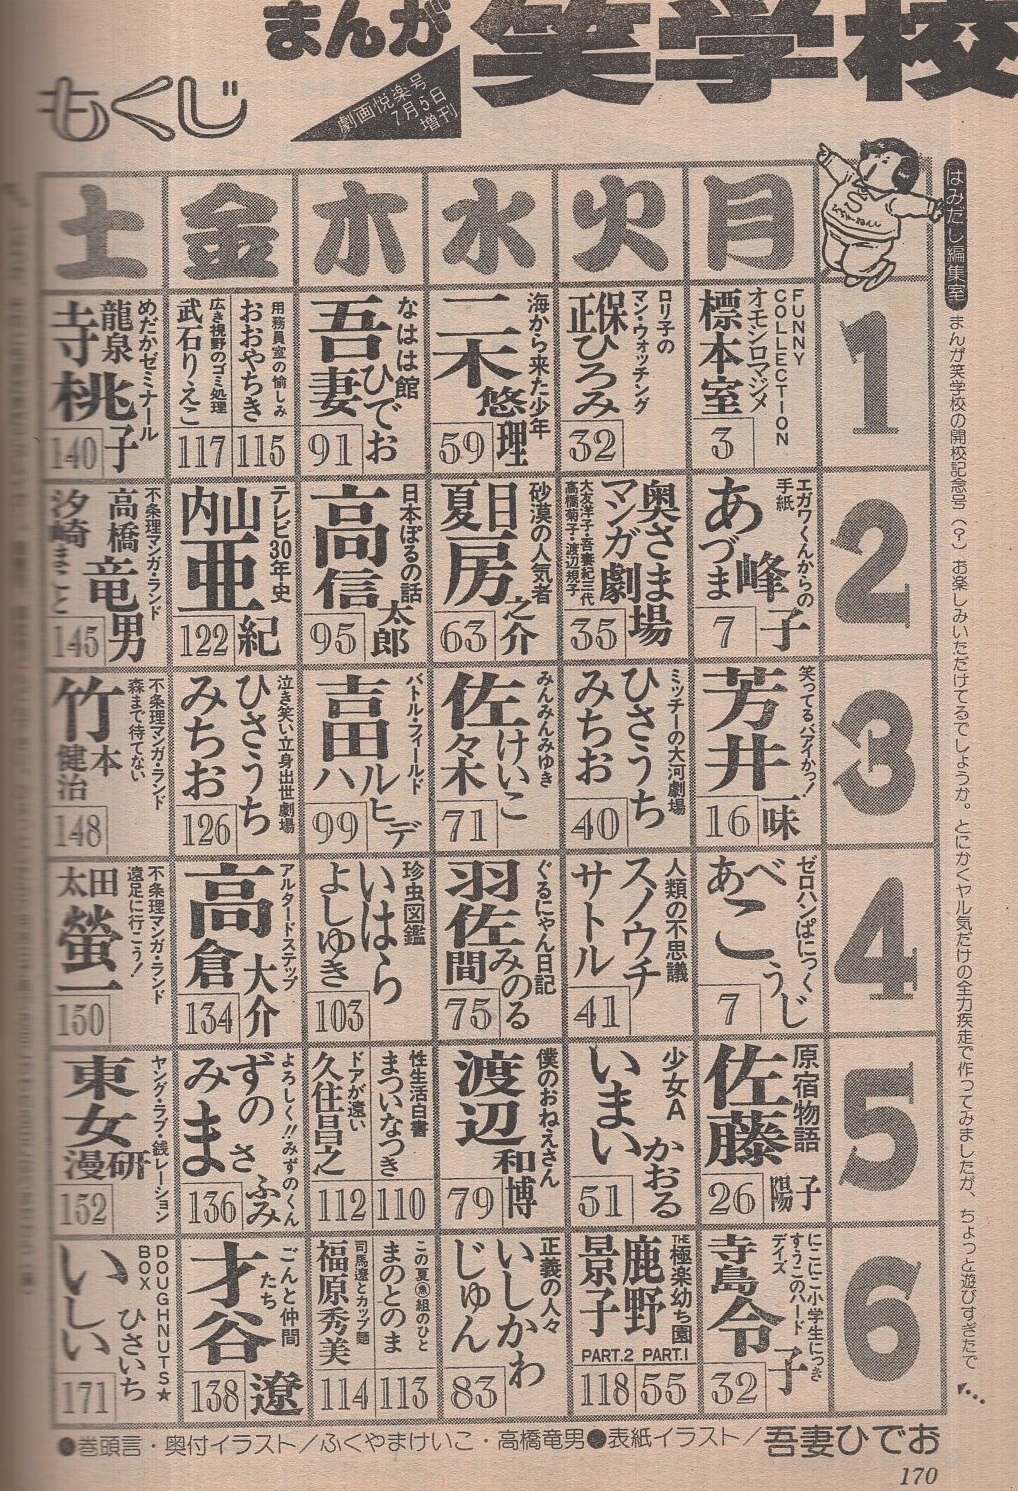 まんが
笑学校
劇画悦楽号
7月5日
増刊
もくじ
月
火
水
木
金
土
はみだし編集室
まんが笑学校の開校記念号(?)お楽しみいただけてるでしょうか。とにかくヤル気だけの全力疾走で作ってみましたが、ちょっと遊びすぎたで
1
FUNNY
COLLECTION
オモシロマジメ
標本室
3
ロリ子の
マン・ウォッチング
保正ひろみ
32
海から来た少年
二木悠理
59
なはは館
吾妻ひでお
91
用務員室の愉しみ
おおやちき
115
広き視野のゴミ処理
武石りえこ
117
めだかゼミナール
龍泉寺桃子
140
2
エガワくんからの
手紙
あづま峰子
7
奥さま
マンガ劇場
大友洋子・吾妻紀三代
高橋菊子・渡辺規子
35
砂漠の人気者
夏目房之介
63
日本ぽるの話
高信太郎
95
テレビ30年史
内山亜紀
122
不条理マンガ・ランド
高橋竜男
汐崎まこと
145
3
笑ってるバアイかっ!
芳井一味
16
ミッチーの大河劇場
ひさうち
みちお
40
みんみんみゆき
佐々木けいこ
71
バトル・フィールド
吉田ハルヒデ
99
泣き笑い立身出世劇場
ひさうち
みちお
126
不条理マンガ・ランド
森まで待てない
竹本健治
148
4
ゼロハンぱにっく
あべこうじ
7
人類の不思議
スノウチ
サトル
41
ぐるにゃん日記
羽佐間みのる
75
珍虫図鑑
いはら
よしゆき
103
アルタードステップ
高倉大介
134
不条理マンガ・ランド
遠足に行こう!
太田螢一
150
5
原宿物語
佐藤陽子
26
少女A
いまいかおる
51
僕のおねえさん
渡辺和博
79
性生活白書
まついなつき
110
ドアが遠い
久住昌之
112
よろしく!!みずのくん
みずのまさふみ
136
ヤング・ラブ・銭レーション
東女漫研
152
6
にこにこ小学生にっき
すうこのハード
デイズ
寺島令子
32
THE極楽幼ち園
鹿野景子
PART.1
55
PART.2
118
正義の人々
いしかわ
じゅん
83
この夏㊙組のひと
まのとのま
113
司馬遼とカップ麺
福原秀美
114
ごんたちと仲間
才谷遼
138
DOUGHNUTS★
BOX
いしいひさいち
171
●巻頭言・奥付イラスト/ふくやまけいこ・高橋竜男●表紙イラスト/吾妻ひでお
170